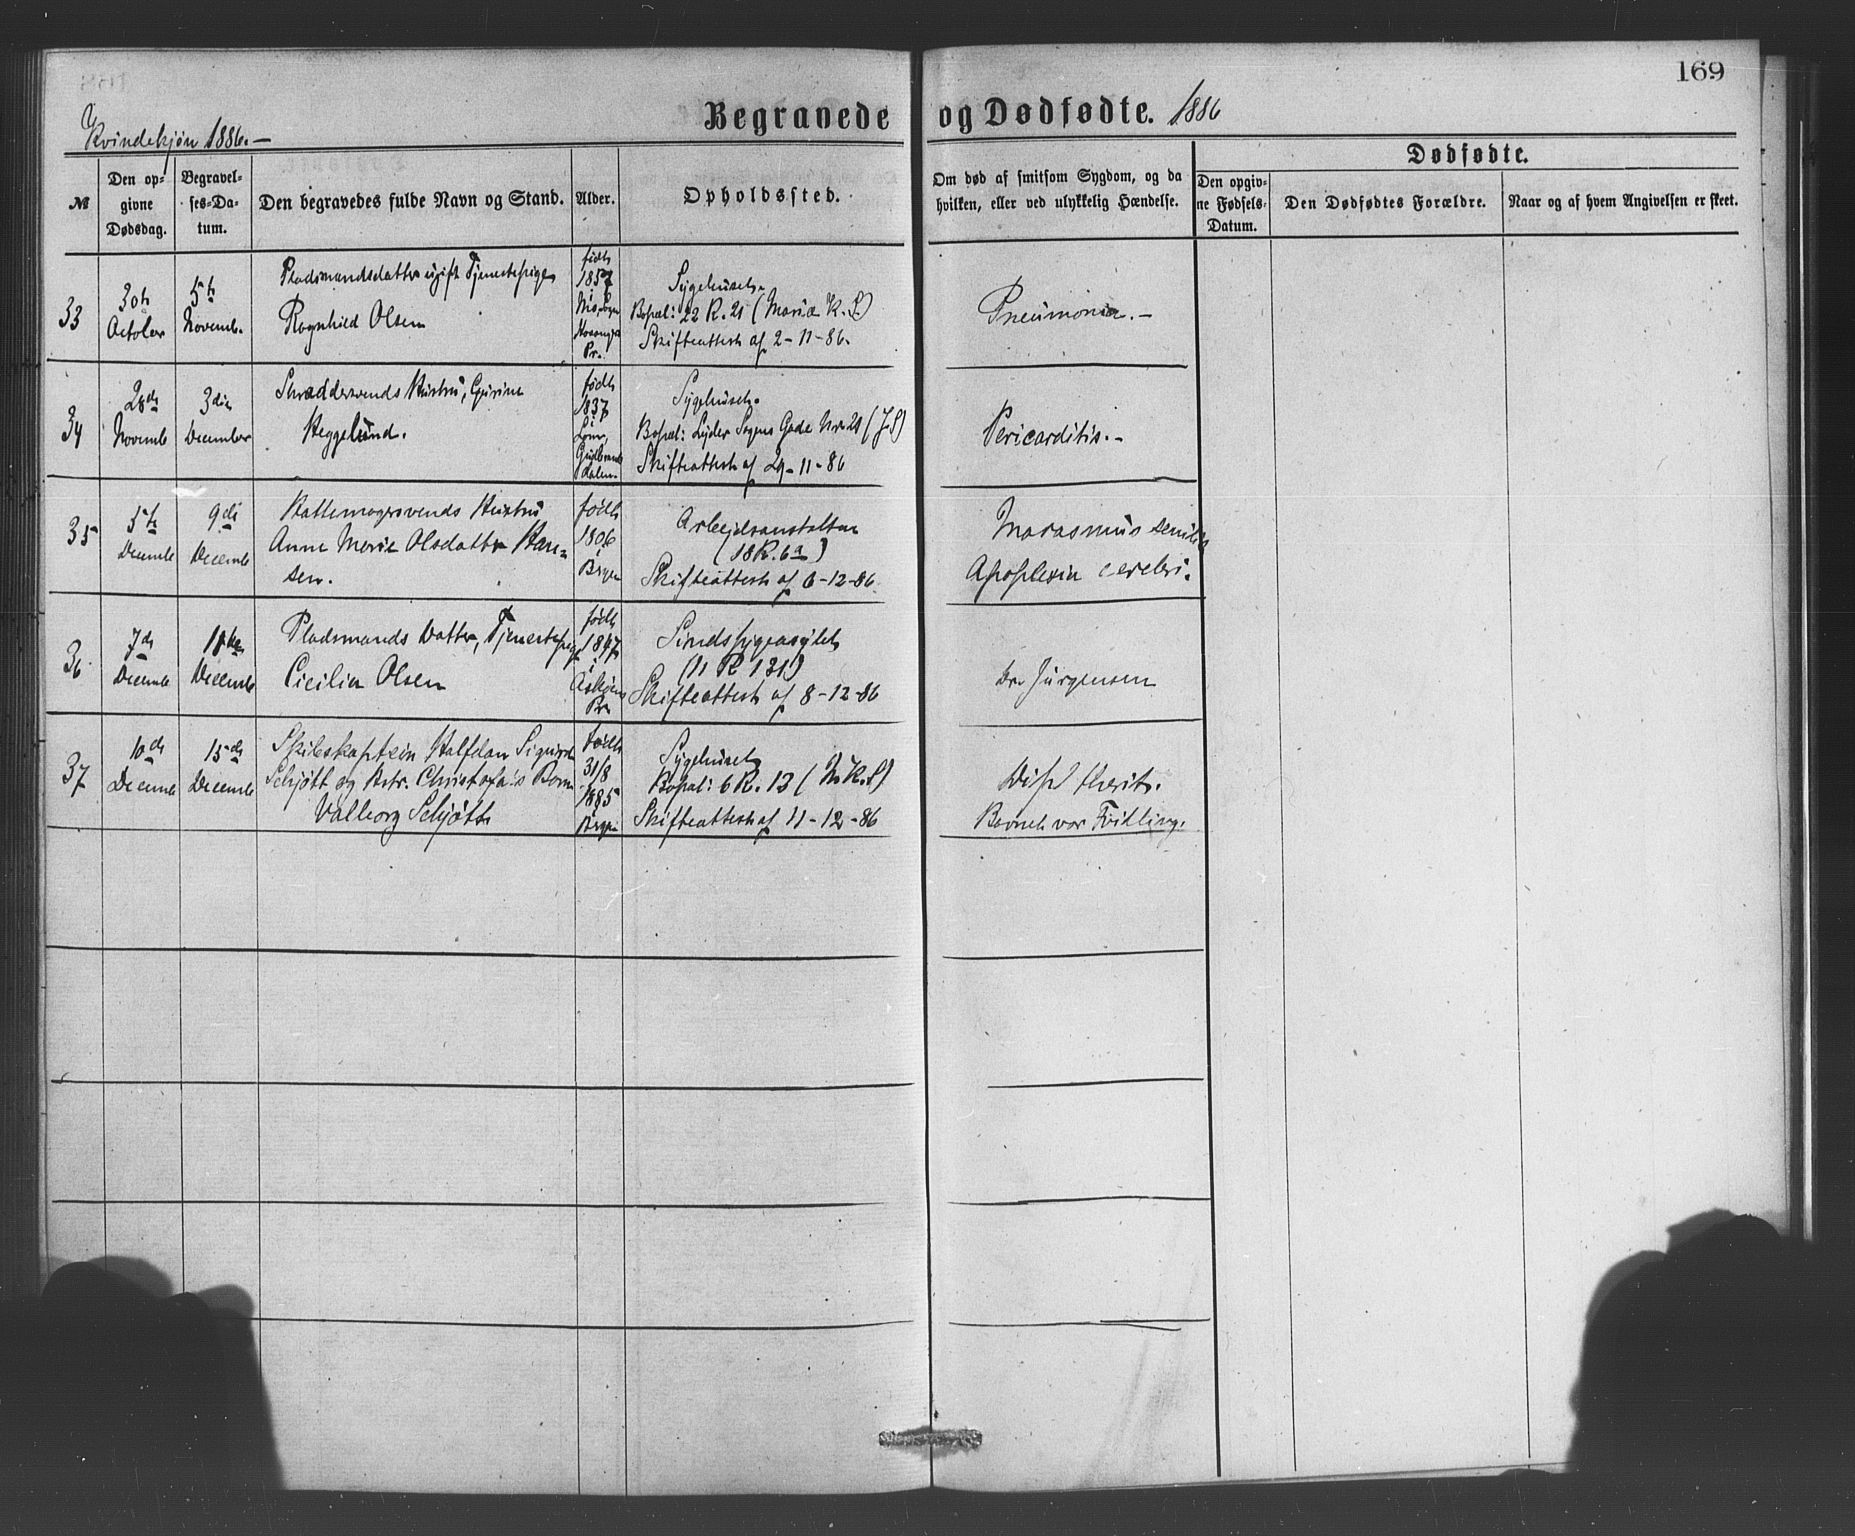 169
Begravede og Dødfødte. 1886
Kvindekjøn 1886.-
№
Den op-
givne
Dødsdag.
Begravel-
ses-Da-
tum.
Den begravedes fulde Navn og Stand.
Alder.
Opholdssted.
Om død af smitsom Sygdom, og da
hvilken, eller ved ulykkelig Hændelse.
Dødfødte.
Den opgiv-
ne Fødsels-
Datum.
Den Dødfødtes Forældre.
Naar og af hvem Angivelsen er skeet.
33
30te
October
5te
Novemb.
Pladsmandsdatter ugift Tjenestepige
Ragnhild Olsen
født
1857
i
Hosanger
Pr.
Sygehuset.
Bopæl: 22 R. 21 (Mariæ K. S.)
Skifteattest af 2-11-86.
Pneumonia.-
34
28de
Novemb
3die
December
Skræddersvends Hustru, Gurine
Heggelund.
født
1837
i
Lom,
Gudbrands
dalen.
Sygehuset.
Bopæl: Lyder Sagens Gade Nr. 21 (J. S)
Skifteattest af 29-11-86
Pericarditis.-
35
5te
Decemb
9de
Decemb
Hattemagersvends Hustru
Anne Marie Olsdatter Han=
sen.
født
1806
i
Bergen
Arbejdsanstalten
(18 R. 6a)
Skifteattest af 6-12-86.
Marasmus senilis
Apoplexia cerebri.
36
7de
Decemb
11te
Decemb
Pladsmands Datter, Tjenestepige
Cicilia Olsen
født
1847
i
Askøens
Pr.
Sindssygeasylet
(11 R 131)
Skifteattest af 8-12-86
Dr. Jürgensen
37
10de
Decemb
15de
Decemb
Skibskaptein Halfdan Sigurd
Schjøtt og Hstr. Christofa's Barn
Valborg Schjøtt
født
31/8
1885
Bergen
Sygehuset
Bopæl: 6 R. 13 (N. K. S)
Skifteattest af 11-12-86
Diphtherit.
Barnet var Tvilling.